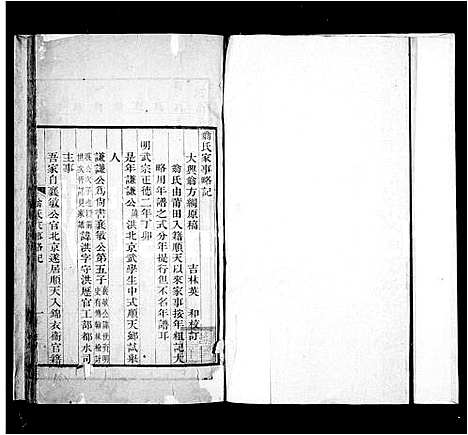 翁氏家事略記
大興翁方綱原稿　吉林英和校訂
翁氏由莆田入籍順天以來家事按年粗記大
略用年譜之式分年提行但不名年譜耳
明武宗正德二年丁卯
是年謙謙公洪北京武學生中式順天鄉試舉
人
謙謙公爲尚書襄敏公第五子
諱洪字守洪歷官工部都水司
主事
吾家自襄敏公官北京遂居順天入錦衣衞官籍
翁氏家事略記
一